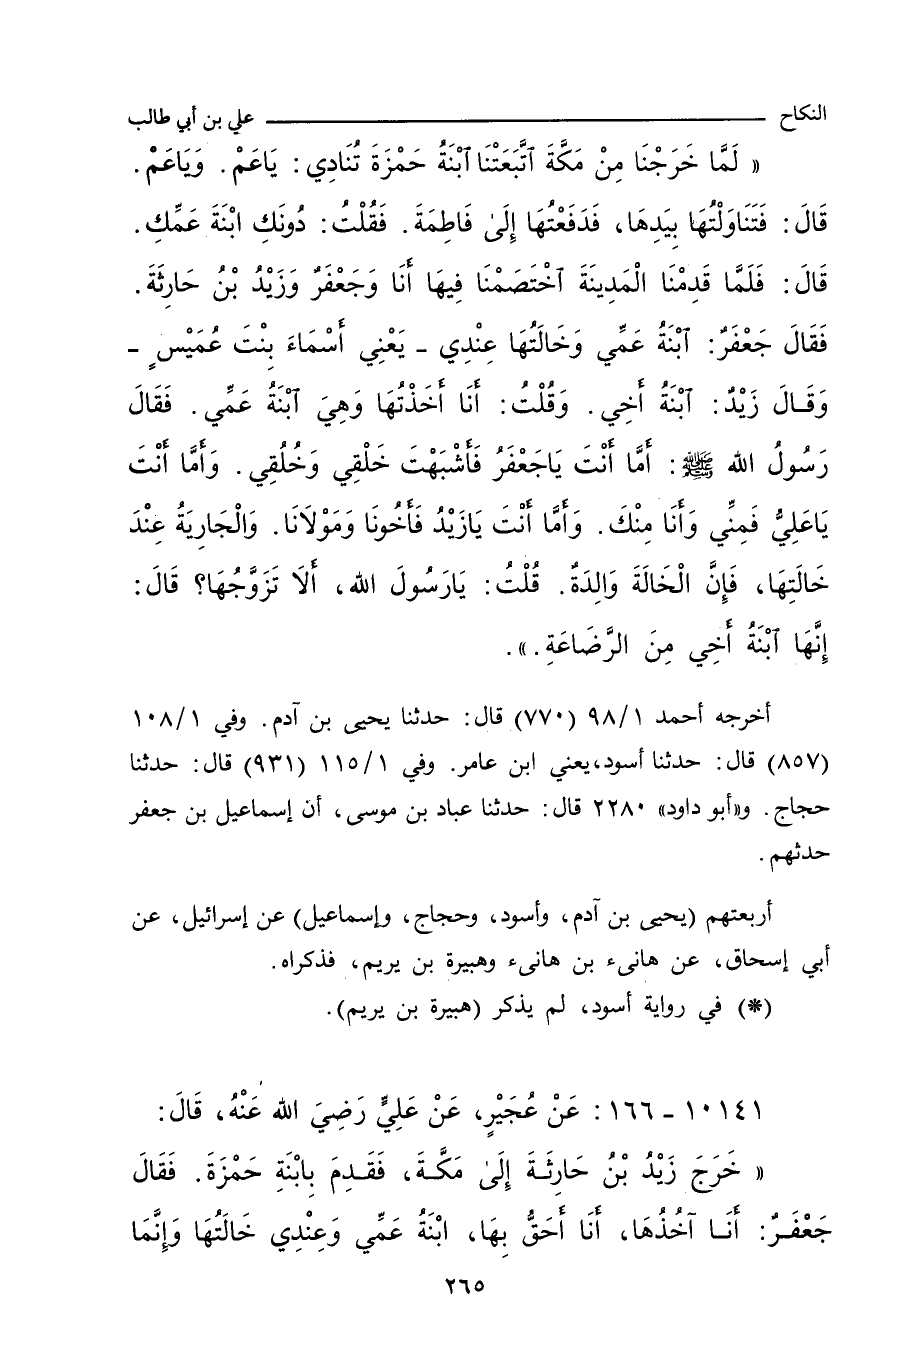 النكاح ـــــــــــــــــــــــــ علي بن أبي طالب
« لَمَّا خَرَجْنَا مِنْ مَكَّةَ ٱتَّبَعَتْنَا ٱبْنَةُ حَمْزَةَ تُنَادِي : يَاعَمْ . وَيَاعَمْ .
قَالَ : فَتَنَاوَلْتُهَا بِيَدِهَا، فَدَفَعْتُهَا إِلَىٰ فَاطِمَةَ . فَقُلْتُ : دُونَكِ ابْنَةَ عَمِّكِ .
قَالَ : فَلَمَّا قَدِمْنَا الْمَدِينَةَ ٱخْتَصَمْنَا فِيهَا أَنَا وَجَعْفَرٌ وَزَيْدُ بْنُ حَارِثَةَ .
فَقَالَ جَعْفَرٌ : ٱبْنَةُ عَمِّي وَخَالَتُهَا عِنْدِي ـ يَعْنِي أَسْمَاءَ بِنْتَ عُمَيْسٍ ـ
وَقَـالَ زَيْدٌ : ٱبْنَةُ أَخِي . وَقُلْتُ : أَنَا أَخَذْتُهَا وَهِيَ ٱبْنَةُ عَمِّي . فَقَالَ
رَسُولُ الله ﷺ : أَمَّا أَنْتَ يَاجَعْفَرُ فَأَشْبَهْتَ خَلْقِي وَخُلُقِي . وَأَمَّا أَنْتَ
يَاعَلِيُّ فَمِنِّي وَأَنَا مِنْكَ . وَأَمَّا أَنْتَ يَازَيْدُ فَأَخُونَا وَمَوْلَانَا . وَالْجَارِيَةُ عِنْدَ
خَالَتِهَا، فَإِنَّ الْخَالَةَ وَالِدَةٌ . قُلْتُ : يَارَسُولَ الله، أَلَا تَزَوَّجُهَا؟ قَالَ :
إِنَّهَا ٱبْنَةُ أَخِي مِنَ الرَّضَاعَةِ . » .
أخرجه أحمد ٩٨/١ (٧٧٠) قال : حدثنا يحيى بن آدم . وفي ١٠٨/١
(٨٥٧) قال : حدثنا أسود، يعني ابن عامر. وفي ١١٥/١ (٩٣١) قال : حدثنا
حجاج . و«أبو داود» ٢٢٨٠ قال : حدثنا عباد بن موسى، أن إسماعيل بن جعفر
حدثهم .
أربعتهم (يحيى بن آدم، وأسود، وحجاج، وإسماعيل) عن إسرائيل، عن
أبي إسحاق، عن هانىء بن هانىء وهبيرة بن يريم، فذكراه .
(*) في رواية أسود، لم يذكر (هبيرة بن يريم) .
١٠١٤١ ـ ١٦٦ : عَنْ عُجَيْرٍ، عَنْ عَلِيٍّ رَضِيَ الله عَنْهُ، قَالَ :
« خَرَجَ زَيْدُ بْنُ حَارِثَـةَ إِلَىٰ مَكَّـةَ، فَقَـدِمَ بِابْنَةِ حَمْزَةَ . فَقَالَ
جَعْفَـرٌ : أَنَـا آخُذُهَا، أَنَا أَحَقُّ بِهَا، ابْنَةُ عَمِّي وَعِنْدِي خَالَتُهَا وَإِنَّمَا
٢٦٥